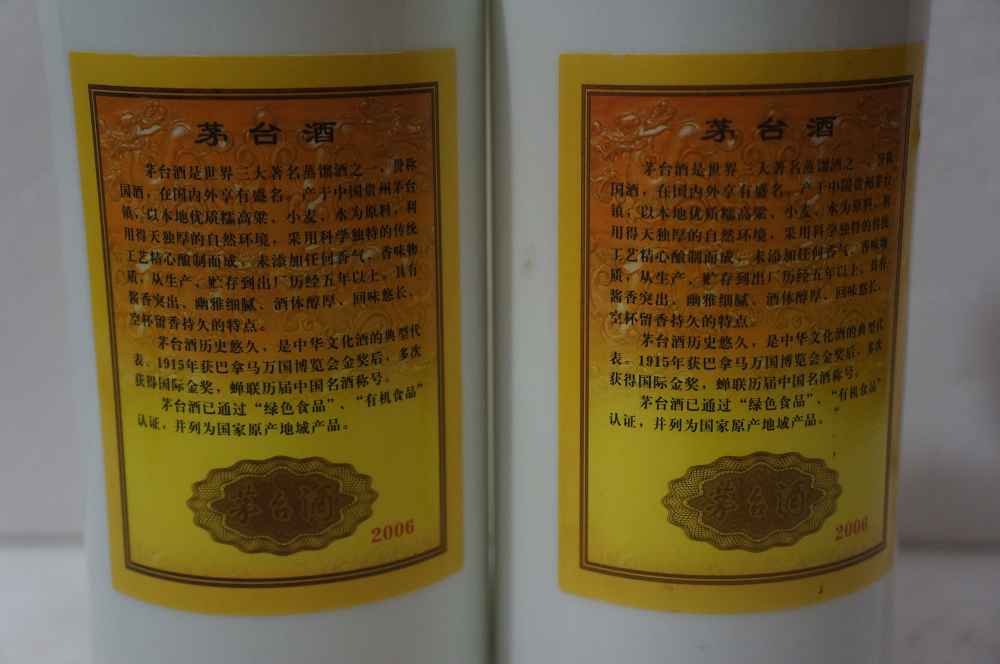 茅台酒
茅台酒是世界三大著名蒸馏酒之一，誉称
国酒，在国内外享有盛名，产于中国贵州茅台
镇，以本地优质糯高粱、小麦、水为原料，利
用得天独厚的自然环境，采用科学独特的传统
工艺精心酿制而成，未添加任何香气、香味物
质，从生产、贮存到出厂历经五年以上，具有
酱香突出、幽雅细腻、酒体醇厚、回味悠长、
空杯留香持久的特点。
茅台酒历史悠久，是中华文化酒的典型代
表。1915年获巴拿马万国博览会金奖后，多次
获得国际金奖，蝉联历届中国名酒称号。
茅台酒已通过“绿色食品”、“有机食品”
认证，并列为国家原产地域产品。
茅台酒
2006
茅台酒
茅台酒是世界三大著名蒸馏酒之一，誉称
国酒，在国内外享有盛名，产于中国贵州茅台
镇，以本地优质糯高粱、小麦、水为原料，利
用得天独厚的自然环境，采用科学独特的传统
工艺精心酿制而成，未添加任何香气、香味物
质，从生产、贮存到出厂历经五年以上，具有
酱香突出、幽雅细腻、酒体醇厚、回味悠长、
空杯留香持久的特点。
茅台酒历史悠久，是中华文化酒的典型代
表。1915年获巴拿马万国博览会金奖后，多次
获得国际金奖，蝉联历届中国名酒称号。
茅台酒已通过“绿色食品”、“有机食品”
认证，并列为国家原产地域产品。
茅台酒
2006